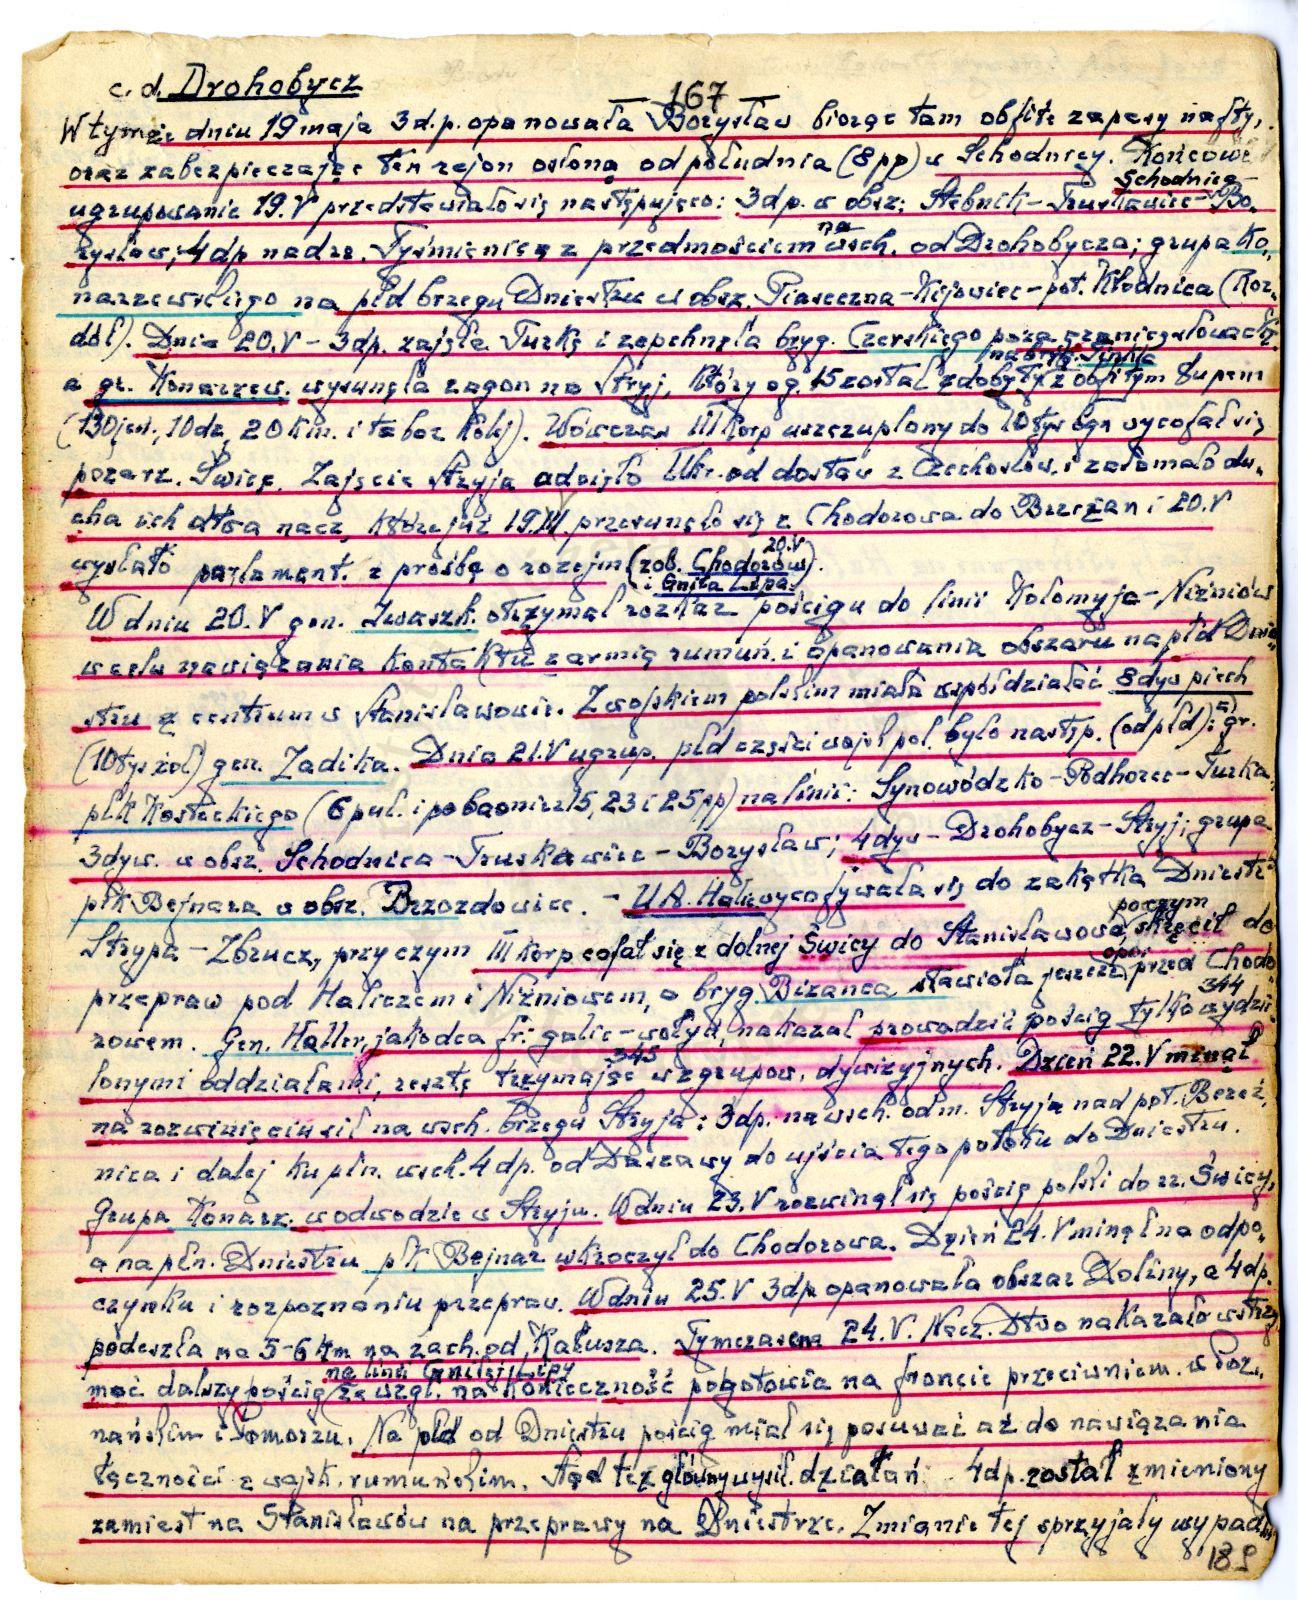 c. d. Drohobycz
— 167 —
W tymże dniu 19 maja 3 d.p. opanowała Borysław biorąc tam obfite zapasy nafty,
oraz zabezpieczając ten rejon osłoną od południa (8 pp) w Schodnicy. Końcowe
Schodnica
ugrupowanie 19.V przedstawiało się następująco: 3dp. w obsz: Stebnik-Truskawiec-Bo-
rysław; 4 dp nad rz. Tyśmienicą z przedmościem na wsch. od Drohobycza; grupa Ko-
narzewskiego na płd brzegu Dniestru w obsz. Piaseczna-Kijowiec-pot. Kłodnica (Roz-
dół). Dnia 20.V - 3dp. zajęła Turkę i zepchnęła bryg. Czerskiego poza granicę słowacką
na bryg.
a gr. Konarzew. wysunęła zagon na Stryj, który o g. 15 został zdobyty z obfitym łupem
(130 jeń., 10 dz, 20 km. i tabor kolej). Wówczas III Korp uszczuplony do 10 tys bgn wycofał się
poza rz. Świcę. Zajęcie Stryja odcięło Ukr. od dostaw z Czechosłow. i załamało du-
cha ich dtwa nacz, które już 19. przesunęło się z Chodorowa do Brzeżan i 20.V
wysłało parlament. z prośbą o rozejm (zob. Chodorów 20.V
i Gniła Lipa).
W dniu 20.V gen. Iwaszk. otrzymał rozkaz pościgu do linii Kołomyja-Niżniów
w celu nawiązania kontaktu z armią rumuń. i opanowania obszaru na płd Dnie-
stru z centrum w Stanisławowie. Z wojskiem polskim miała współdziałać 8 dyw piech
(10 tys żoł) gen. Zadika. Dnia 21.V ugrup. płd części wojsk pol. było następ. (od płd): gr.
płk Kosteckiego (6 puł. i pobaonie z 15, 23 i 25 pp) na linii: Synowódzko-Podhorce-Turka,
3 dyw. w obsz. Schodnica-Truskawiec-Borysław; 4 dyw - Drohobycz-Stryj; grupa
płk Bejnara w obsz. Brzozdowice. - U.A. Halic wycofywała się do zakątka Dniestr
Strypa-Zbrucz, przyczym III Korp cofał się z dolnej Świcy do Stanisławowa, poczym skręcił do
przepraw pod Haliczem i Niżniowem, a bryg Bizanca stawiała jeszcze opór przed Chodo-
rowem. Gen. Haller, jako dca fr: galic-wołyń, nakazał prowadzić pościg tylko wydzie-
344
lonymi oddziałami, resztę trzymając w zgrupow. dywizyjnych. Dzień 22.V minął
345
na rozwinięciu sił na wsch. brzegu Stryja: 3 dp. na wsch. od m. Stryja nad pot. Bereź-
nica i dalej ku płn. wsch. 4 dp. od Daszawy do ujścia tego potoku do Dniestru.
Grupa Konarz. w odwodzie w Stryju. W dniu 23.V rozwinął się pościg polski do rz. Świcy,
a na płn. Dniestru płk Bejnar wkroczył do Chodorowa. Dzień 24.V minął na odpo-
czynku i rozpoznaniu przepraw. W dniu 25.V 3 dp opanowała obszar Doliny, a 4 dp.
podeszła na 5-6 km na zach. od Kałusza. Tymczasem 24.V. Nacz. Dtwo nakazało wstrzy-
mać dalszy pościg na linii Gniłej Lipy ze wzgl. na konieczność pogotowia na froncie przeciwniem. w Poz-
nańskim i Pomorzu. Na płd od Dniestru pościg miał się posuwać aż do nawiązania
łączności z wojsk. rumuńskim. Stąd też główny wysił. działań 4 dp. został zmieniony
zamiast na Stanisławów na przeprawy na Dniestrze. Zmianie tej sprzyjały wypad-
189